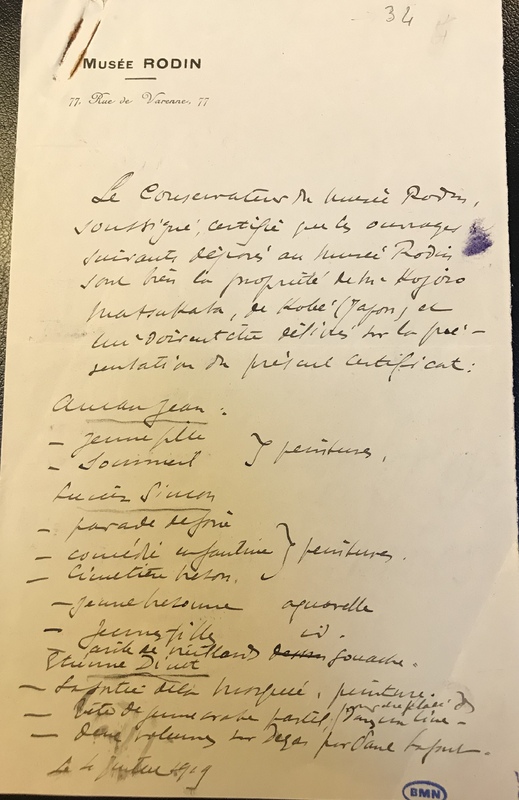 34
MUSÉE RODIN
77, Rue de Varenne, 77
Le Conservateur du musée Rodin,
soussigné, certifie que les ouvrages
suivants déposés au musée Rodin
sont bien la propriété de Mr Kojiro
Matsukata, de Kobé (Japon) et
lui doivent être délivrés sur la pré-
sentation du présent certificat :
Aman Jean :
– jeune fille
– Sommeil } peintures,
Lucien Simon
– parade de foire
– comédie enfantine } peintures.
– Cimetière breton.
– jeune bretonne aquarelle
– jeune fille id.
– asile de vieillards dessin gouache.
Etienne Dinet
– La sortie de la mosquée, peinture.
– tête de jeune arabe pastel
– Deux volumes sur Degas par Paul Lafont.
Le 4 1919
BMN